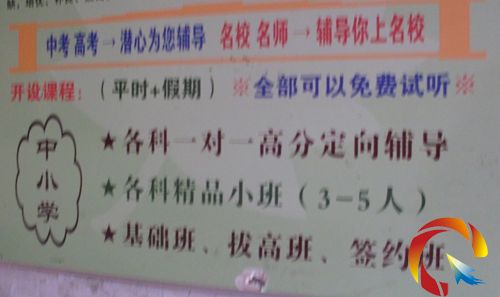 中考 高考 → 潜心为您辅导 名校 名师 → 辅导你上名校
开设课程：（平时+假期） ※全部可以免费试听※
中小学
★各科一对一高分定向辅导
★各科精品小班（3-5人）
★基础班、拔高班、签约班